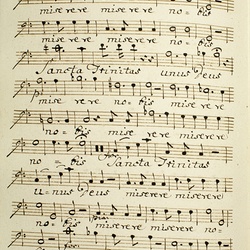 miserere miserere no=bis
miserere miserere no=bis
Sancta Trinitas unus Deus
miserere nobis miserere
no=bis miserere miserere
no=bis Sancta Trinitas
unus Deus miserere miserere
nobis miserere miserere